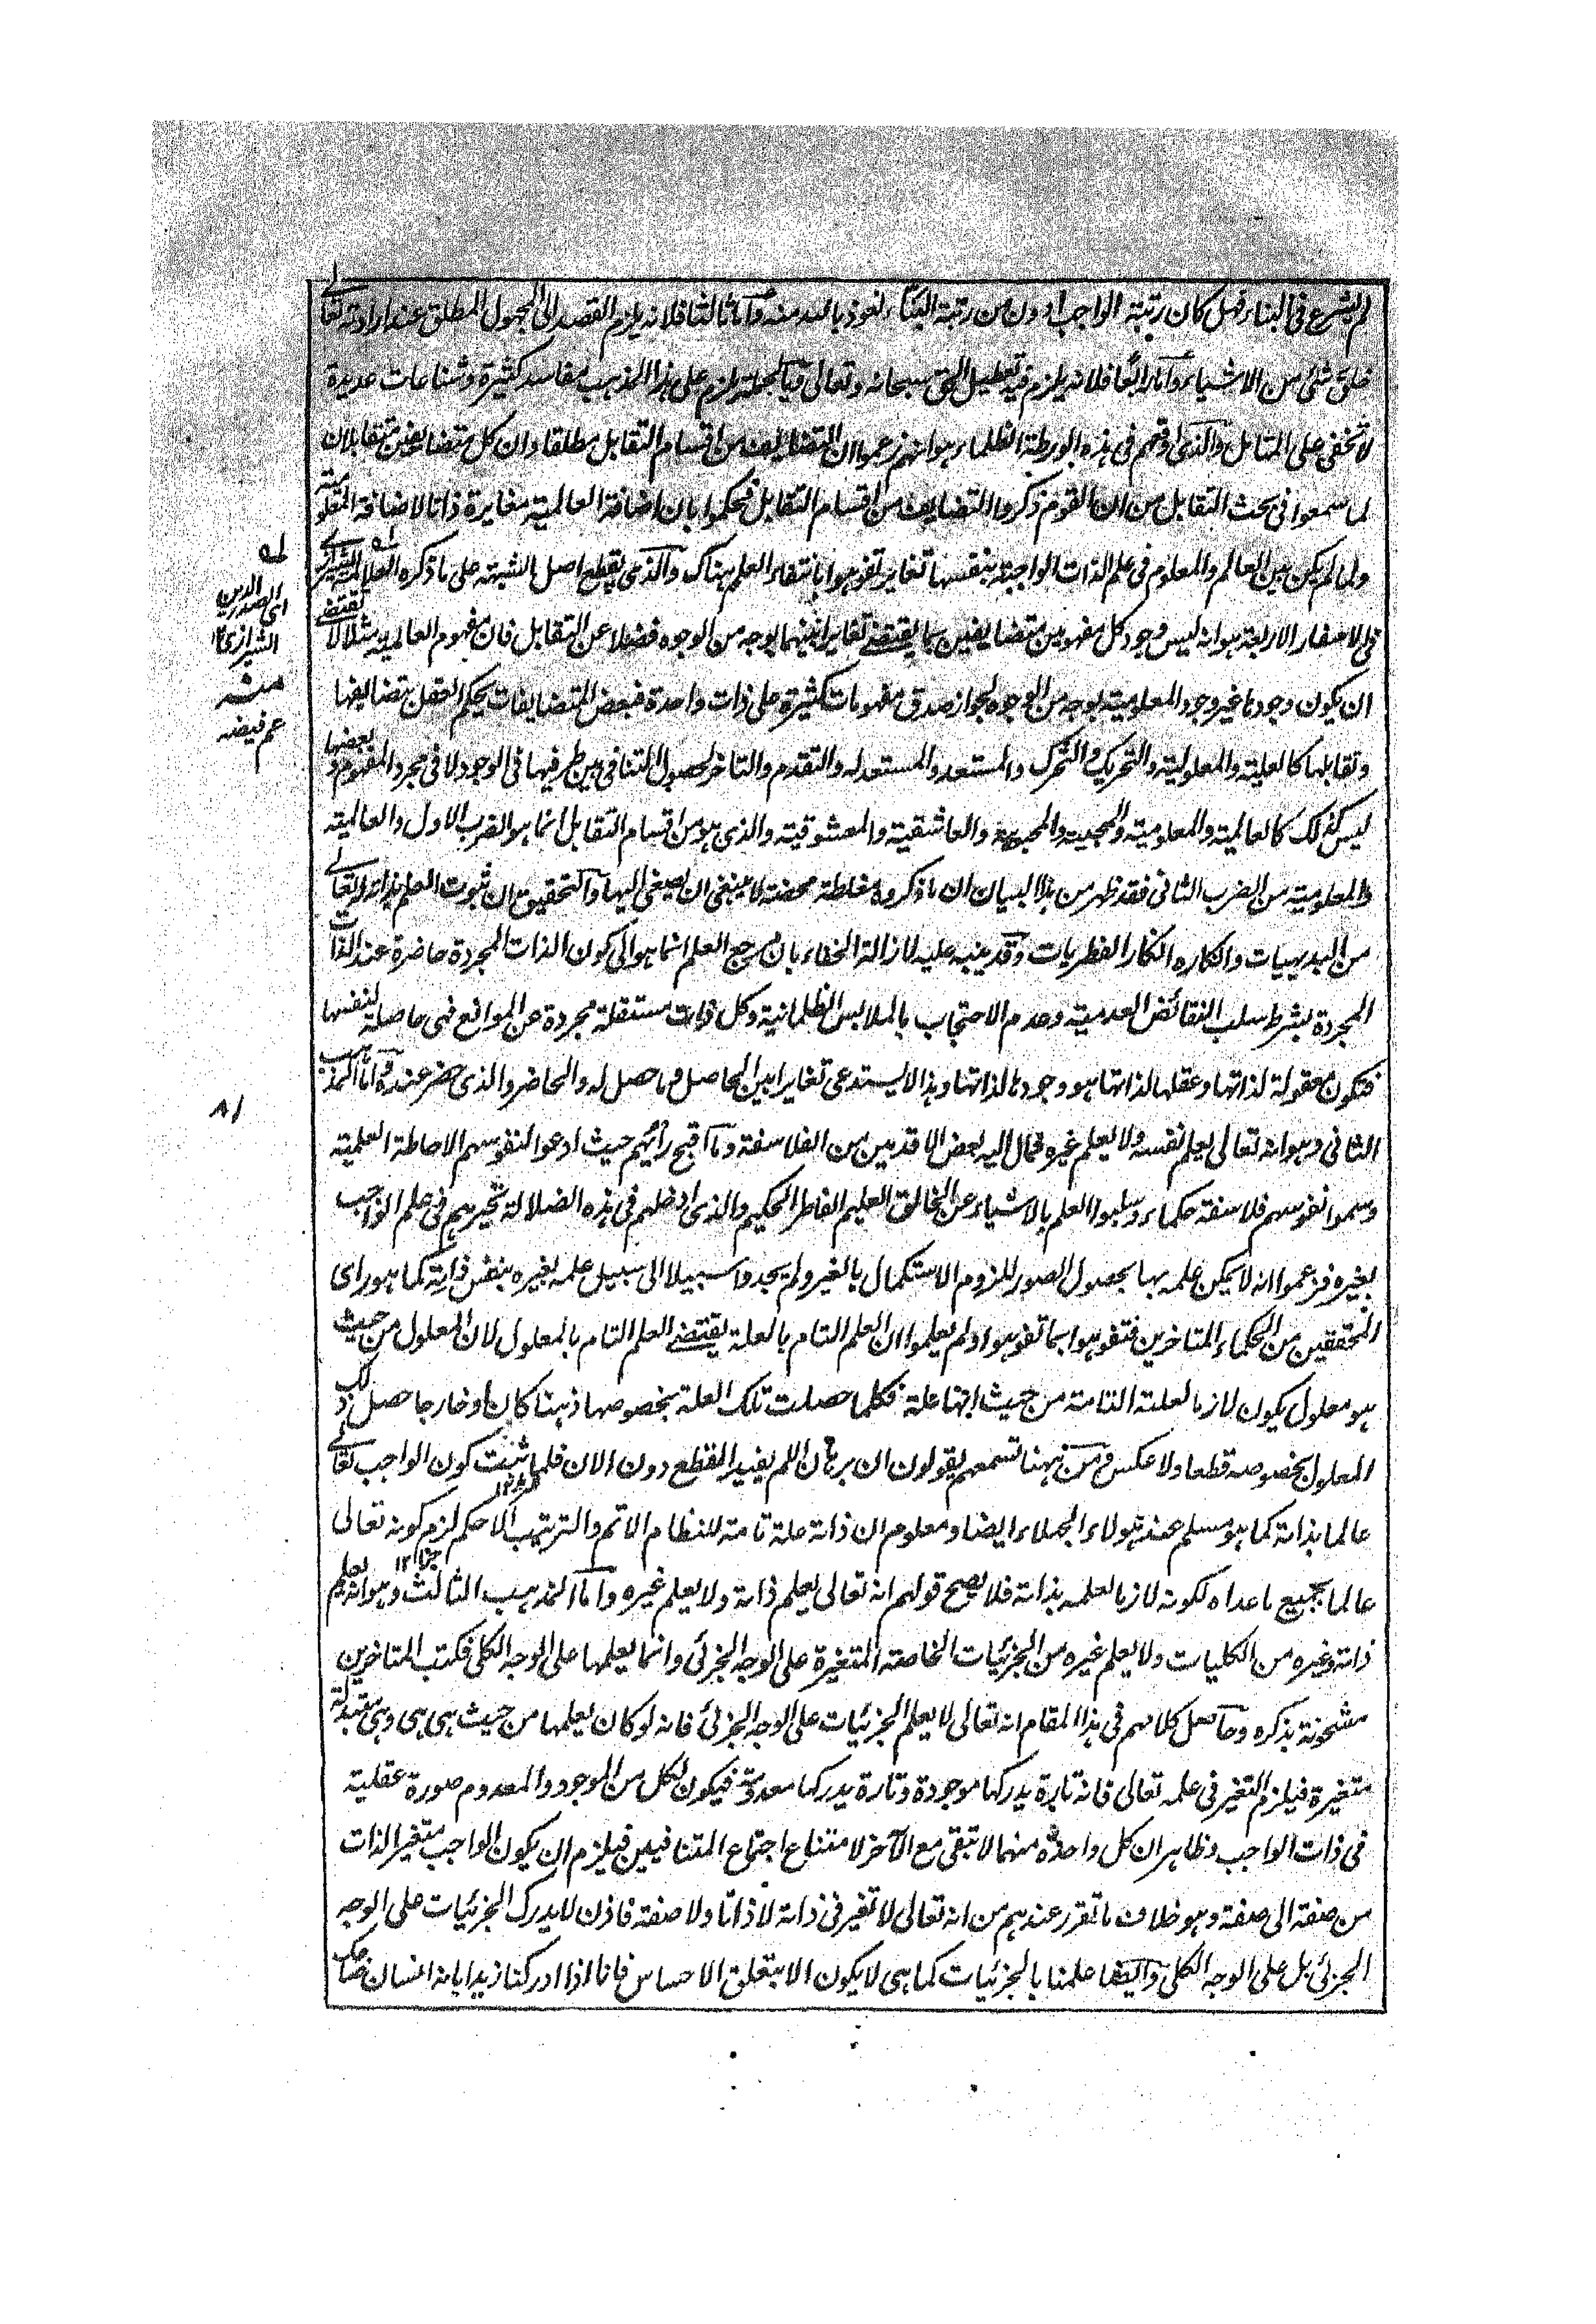 لم يشرع فى البناء فهل كان رتبة الواجب ادون من رتبة البنّاء نعوذ بالله منه واما ثالثا فلانه يلزم القصد الى المجهول المطلق عند ارادته تعالے
خلق شئ من الاشياء واما رابعًا فلانه يلزم فيه تعطيل الحق سبحانه وتعالى وبالجملة يلزم على هذا المذهب مفاسد كثيرة وشناعات عديدة
لا تخفى على المتامل والذى اوقعهم فى هذه الورطة الظلماء هو انهم زعموا ان التضايف من اقسام التقابل مطلقا وان كل متضايفين متقابلان
لما سمعوا فى بحث التقابل من ان القوم ذكروا التضايف من اقسام التقابل فحكموا بان اضافة العالمية مغايرة ذاتا لاضافة المعلومية
ولما لم يكن بين العالم والمعلوم فى علم الذات الواجبة بنفسها تغاير تفوهوا بانتفاء العلم هناك والذى يقطع اصل الشبهة على ما ذكره العلامة الشيرازے
فى الاسفار الاربعة هو انه ليس وجود كل مفهومين متضايفين مما يقتضے تغاير اثنينهما بوجه من الوجوه فضلا عن التقابل فان مفهوم العالمية مثلا لا تقتضے
ان يكون وجودها غير وجود المعلومية بوجه من الوجوه لجواز صدق مفهومات كثيرة على ذات واحدة فبعض المتضايفات يحكم العقل بتضايفها
وتقابلها كالعلية والمعلولية والتحريك والتحرك والمستعد والمستعد له والتقدم والتاخر لحصول التنافى بين طرفيها فى الوجود لا فى مجرد المفهوم وبعضها
ليس كذلك كالعالمية والمعلومية والمحبية والمحبوبية والعاشقية والمعشوقية والذى هو من اقسام التقابل انما هو الضرب الاول والعالمية
والمعلومية من الضرب الثانى فقد ظهر من هذا البيان ان ما ذكروه مغلطة محضة لا ينبغى ان يصغى اليها والتحقيق ان ثبوت العلم بذاته تعالے
من البديهيات وانكاره انكار الفطريات وقد ينبه عليه لازالة الخفاء بان مرجع العلم انما هو الى كون الذات المجردة حاضرة عند الذات
المجردة بشرط سلب النقائض العدمية وعدم الاحتجاب بالملابس الظلمانية وكل ذات مستقلة مجردة عن المواقع فهى حاصلة لنفسها
فتكون معقولة لذاتها وعقلها لذاتها هو وجودها لذاتها وهذا لا يستدعى تغايرا بين الحاصل وما حصل له والحاضر والذى حضر عنده واما المذهب
الثانى وهو انه تعالى يعلم نفسه ولا يعلم غيره فمال اليه بعض الاقدمين من الفلاسفة وما اقبح رأيهم حيث ادعوا لنفوسهم الاحاطة العلمية
وسموا نفوسهم فلاسفة حكماء وسلبوا العلم بالاشياء عن الخالق العليم الفاطر الحكيم والذى ادخلهم فى هذه الضلالة تحيرهم فى علم الواجب
بغيره فزعموا انه لا يمكن علمه بها بحصول الصور للزوم الاستكمال بالغير ولم يجدوا سبيلا الى سبيل علمه بغيره بنفس ذاته كما هو راى
المحققين من الحكماء المتاخرين فتفوهوا بما تفوهوا ولم يعلموا ان العلم التام بالعلة يقتضے العلم التام بالمعلول لان المعلول من حيث
هو معلول يكون لازما لعلته التامة من حيث انها علة فكلما حصلت تلك العلة بخصوصها ذهنا كان او خارجا حصل ذلك
المعلول بخصوصه قطعا ولا عكس ومن ههنا تسمعهم يقولون ان برهان اللم يفيد القطع دون الان فلما ثبت كون الواجب تعالے
عالما بذاته كما هو مسلم عند هؤلاء الجهلاء ايضا ومعلوم ان ذاته علة تامة للنظام الاتم والترتيب الاحكم لزم كونه تعالى
عالما بجميع ما عداه لكونه لازما لعلمه بذاته فلا يصح قولهم انه تعالى يعلم ذاته ولا يعلم غيره واما المذهب الثالث وهو انه يعلم
ذاته وغيره من الكليات ولا يعلم غيره من الجزئيات الخاصة المتغيرة على الوجه الجزئى وانما يعلمها على الوجه الكلى فكتب المتاخرين
مشحونة بذكره وحاصل كلامهم فى هذا المقام انه تعالى لا يعلم الجزئيات على الوجه الجزئى فانه لو كان يعلمها من حيث هى هى وهى متبدلة
متغيرة فيلزم التغير فى علمه تعالى فانه تارة يدركها موجودة وتارة يدركها معدومة فيكون لكل من الموجود والمعدوم صورة عقلية
فى ذات الواجب وظاهر ان كل واحدة منهما لا تبقى مع الآخر لامتناع اجتماع المتنافيين فيلزم ان يكون الواجب متغير الذات
من صفة الى صفة وهو خلاف ما تقرر عندهم من انه تعالى لا تغير فى ذاته لا ذاتا ولا صفة فاذن لا يدرك الجزئيات على الوجه
الجزئى بل على الوجه الكلى وايضا علمنا بالجزئيات كما هى لا يكون الا بتعلق الاحساس فانا اذا ادركنا زيدا بانه انسان ضاحك
له
اى الصدر الدين
الشيرازى ١٢
منه
عم فيضه
٨١